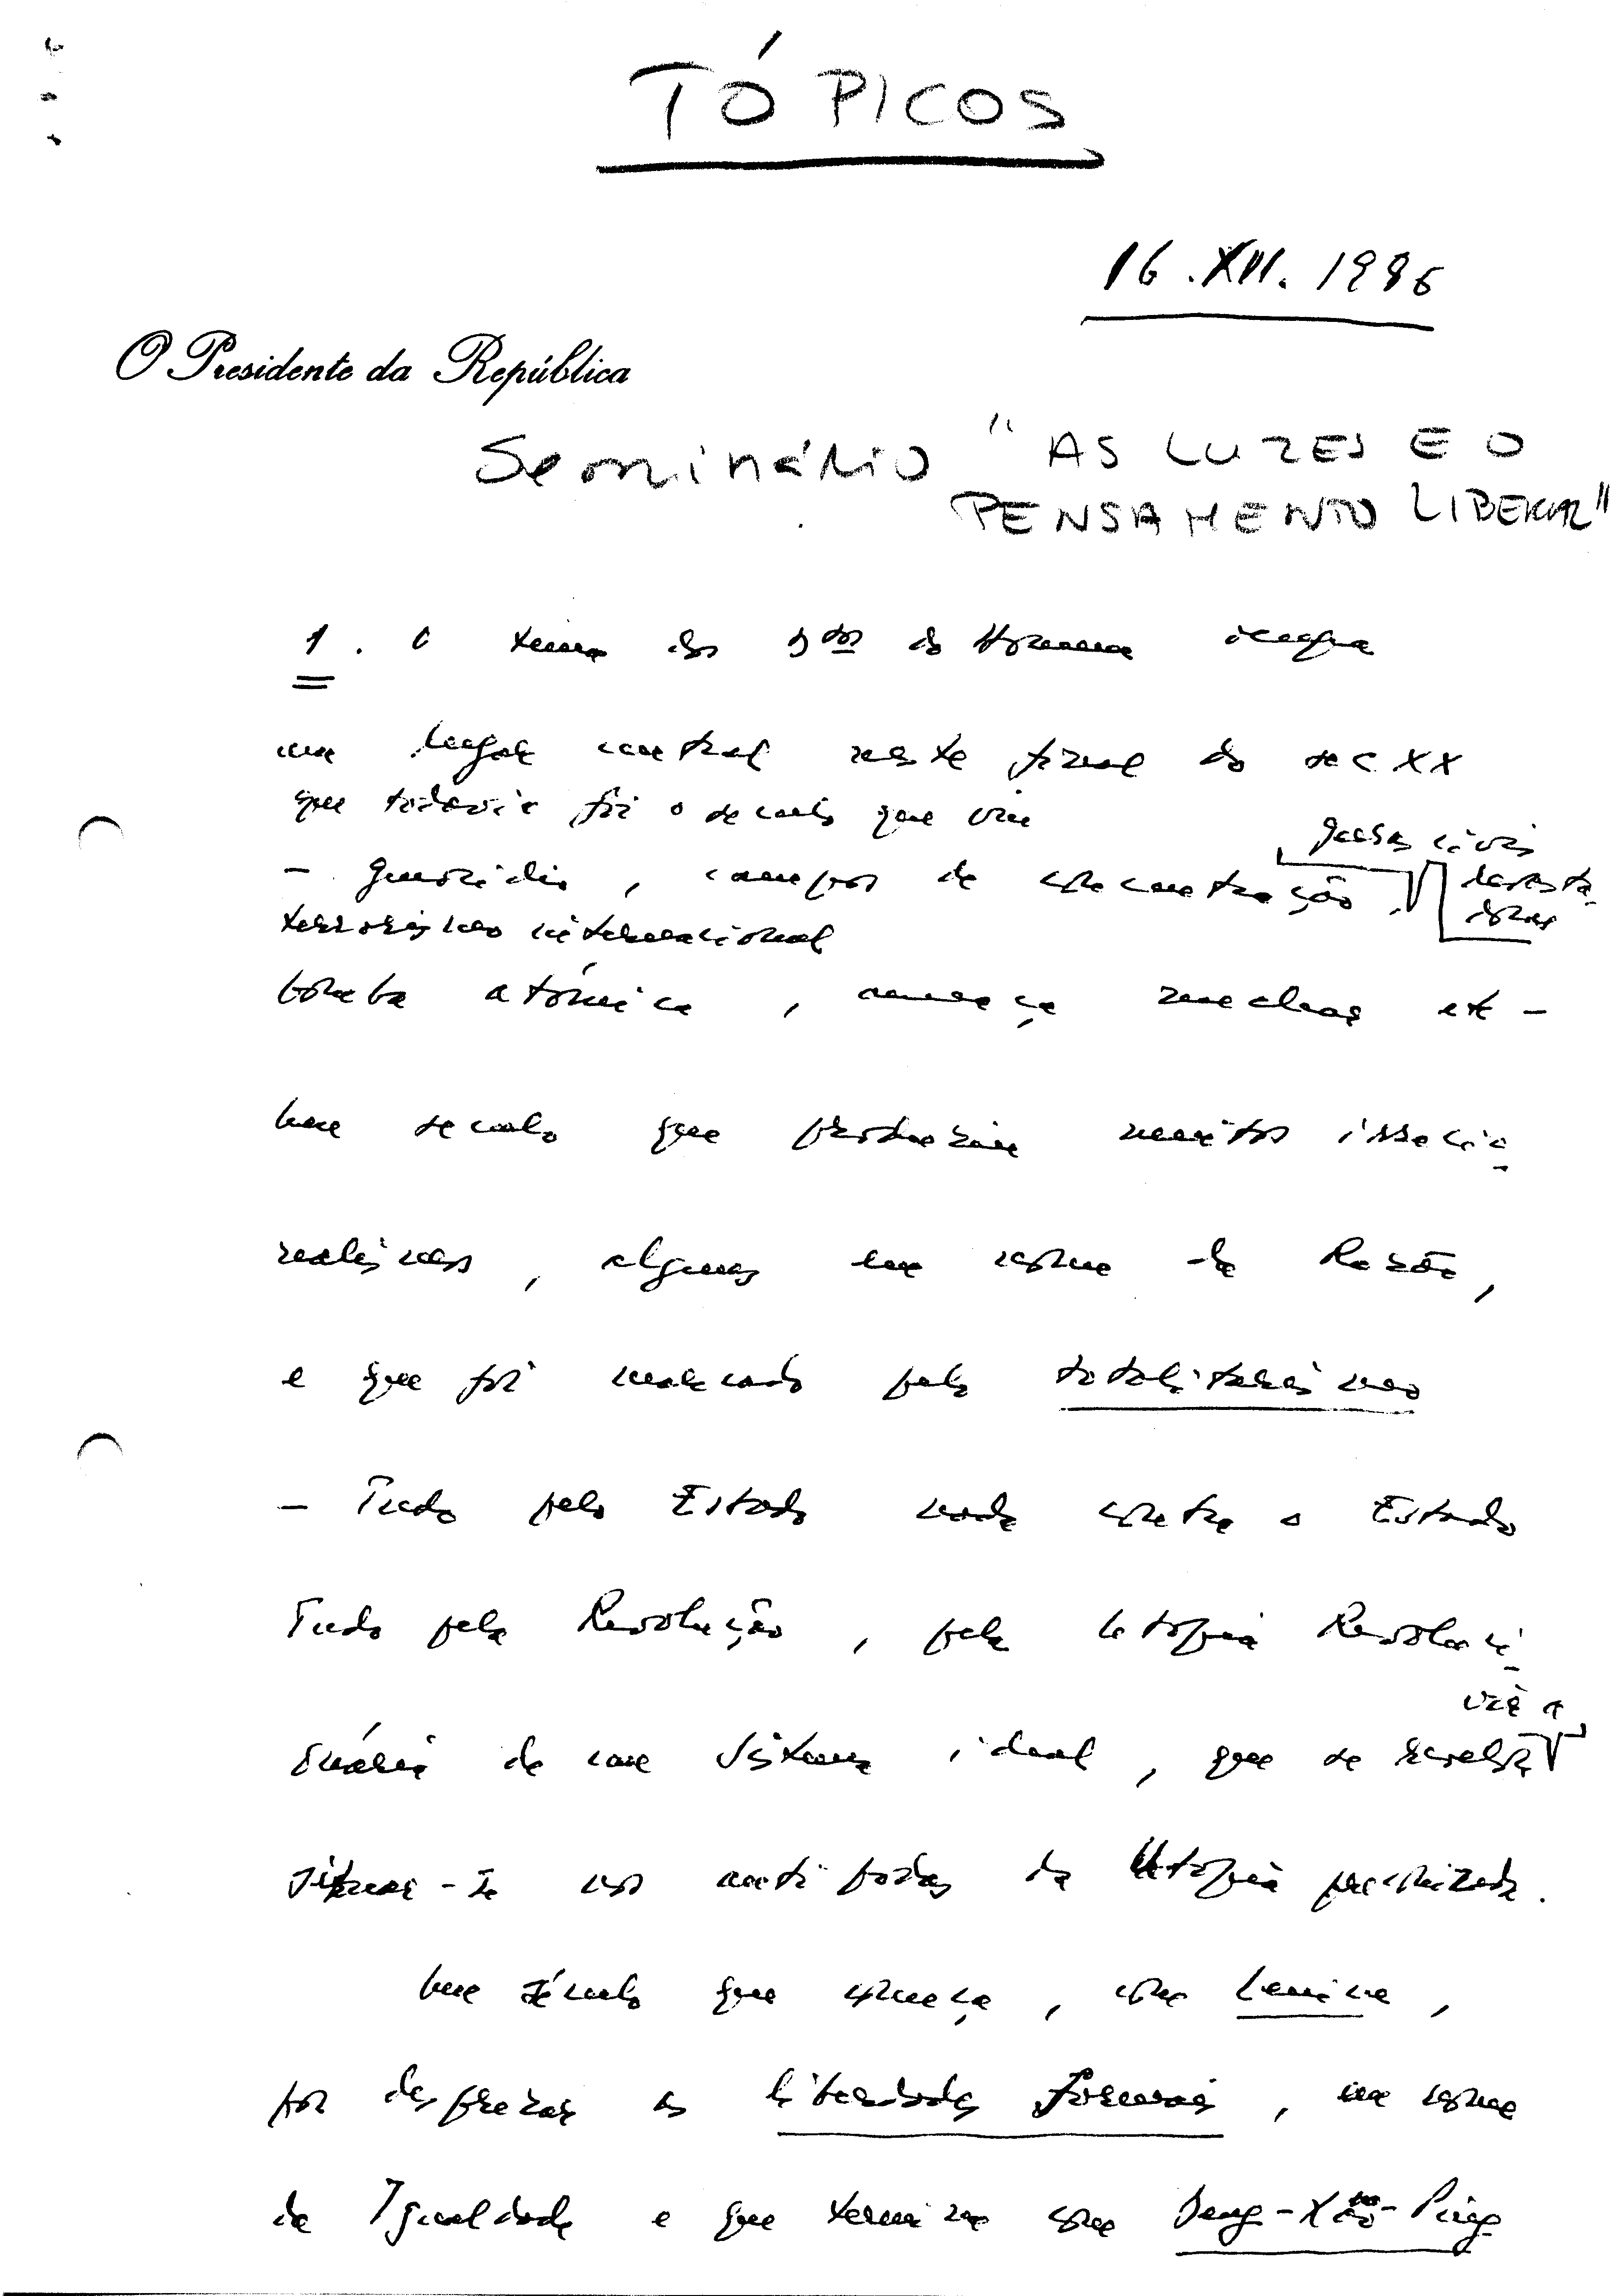 TÓPICOS
16.XII.1986
O Presidente da República
Seminário "AS LUZES E O
PENSAMENTO LIBERAL"
1. O tema dos dtos do Homem ocupa
um lugar central neste final do sec XX
que todavia foi o seculo que viu
guerras civis
- genocídios, campos de concentração, devasta-
doras
terrorismo internacional
bomba atómica, ameaça nuclear etc -
um seculo que produziu muitos irracio-
nalismos, alguns em nome da Razão,
e que foi marcado pelo totalitarismo
- Tudo pelo Estado nada contra o Estado
Tudo pela Revolução, pela Utopia Revoluci-
onária de um Sistema ideal, que se revelou
vir a
situar-se nos antípodas da Utopia preconizada.
Um século que começa, com Lenine,
por desprezar as liberdades formais, em nome
da Igualdade e que termina com Deng-Xiao-Ping